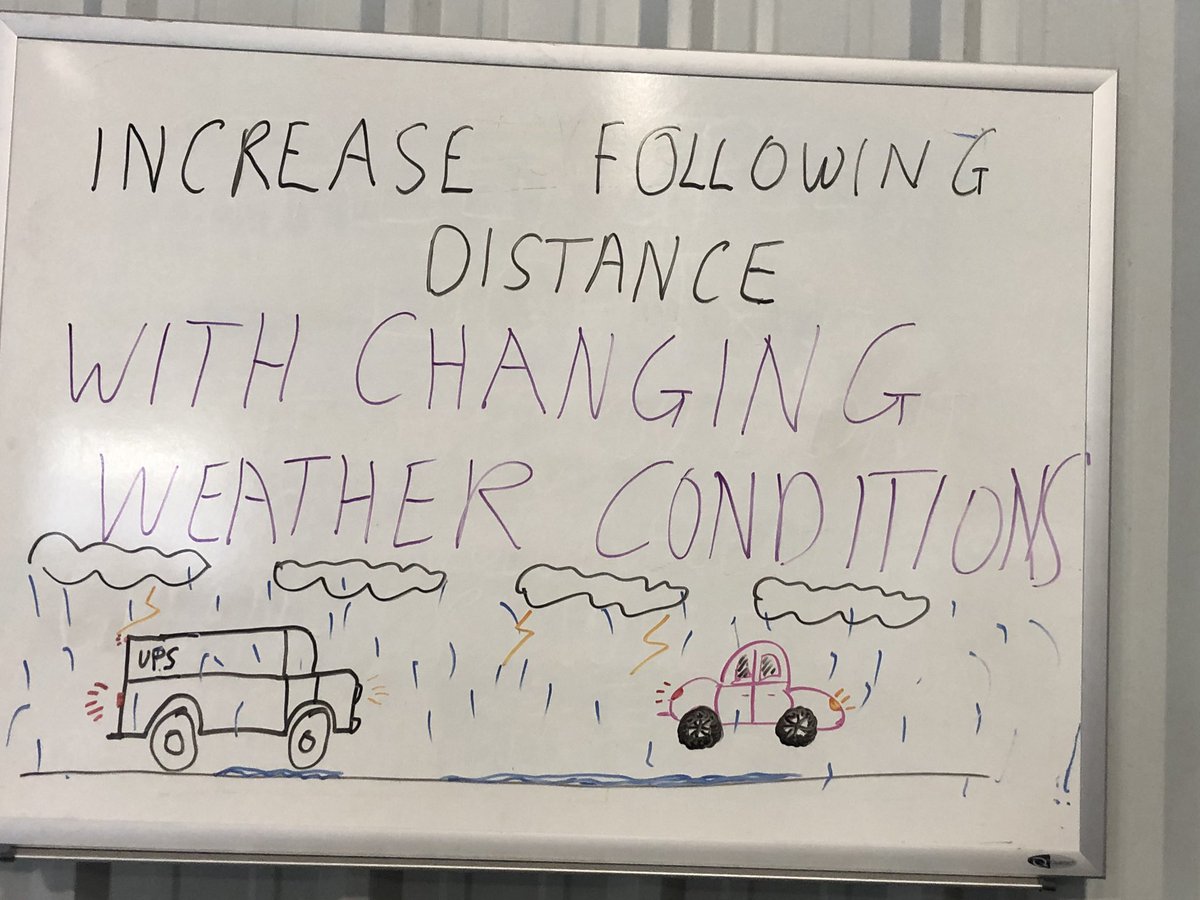 INCREASE FOLLOWING
DISTANCE
WITH CHANGING
WEATHER CONDITIONS
UPS